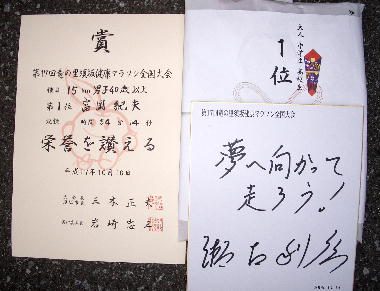 賞
第17回竜の里須坂健康マラソン全国大会
種目 15km男子40歳以上
第1位 富岡紀夫
記録 時間54分4秒
栄誉を讃える
平成17年10月16日
三木正夫
岩崎忠
1位
第17回竜の里須坂健康マラソン全国大会
夢へ向かって
走ろう!
瀬古利彦